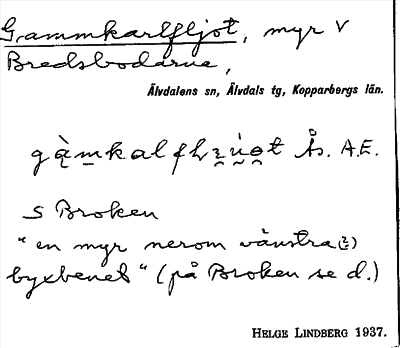 Gammkarlfljot, myr V
Bredsbodarna,
Älvdalens sn, Älvdals tg, Kopparbergs län.
Ås. A.E.
S Broken
"en myr nerom vänstra
byxbenet" (på Broken se d.)
HELGE LINDBERG 1937.